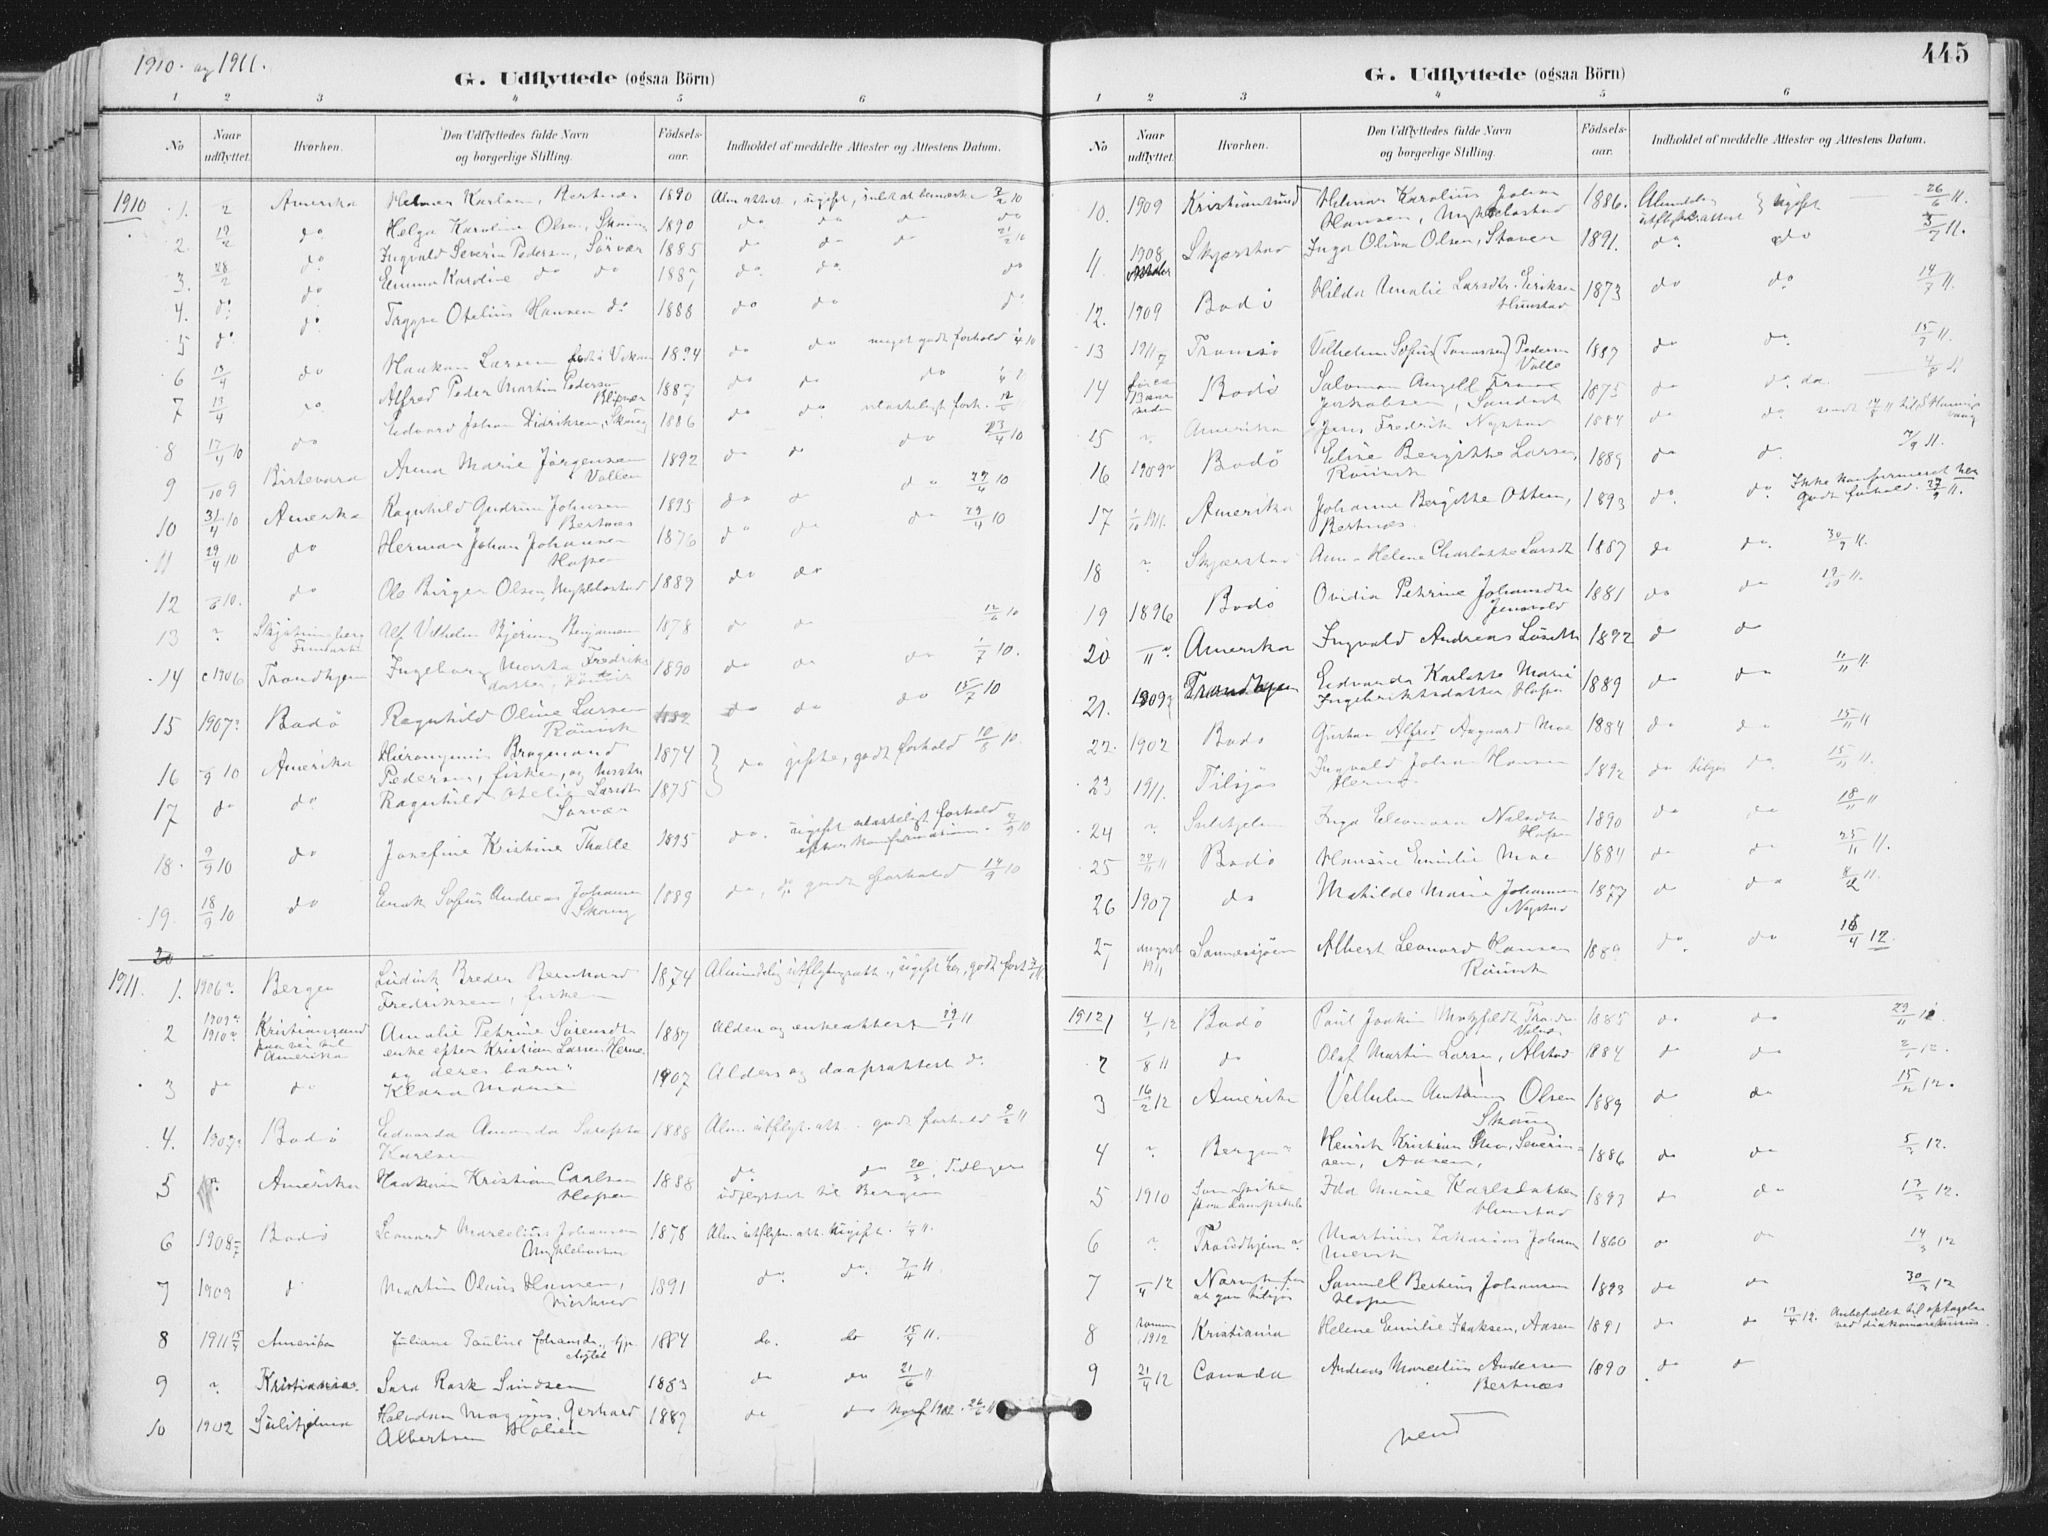 1910. og 1911.
G. Udflyttede (ogsaa Börn)
1 2 3 4 5 6
No
Naar udflyttet.
Hvorhen.
Den Udflyttedes fulde Navn og borgerlige Stilling.
Födsels-aar.
Indholdet af meddelte Attester og Attestens Datum.
1910
1. 2 Amerika Helmer Karlsen, Bertnæs 1890 Alm attest, ugift, 2/2 10
2. 19/2 do Helga Karoline Olsen, Skaug 1890 do do do do
3. 28/2 do Ingvald Severin Pedersen, Sörvær 1885 do do do 21/2 10
4. do do Emma Kardine do do 1887 do do do
5 do do Trygve Otelius Hansen do 1888 do do do
6 13/4 do Haakon Larsen 1894 do do meget godt forhold 1/4 10
7 13/4 do Alfred Peder Martin Pedersen 1887 do do do 1/4 11
8 17/4 10 do Edvard Johan Didriksen, Skaug 1886 do do 12/4
9 /10 9 Anna Marie Jörgensen
Vollen 1892 do do do 23/4 10
10 31/4 10 Amerika Ragnhild Gudrun Johnsen
Bertnæs 1895 do do do 27/4 10
11 29/4 10 do Herman Johan Johansen
Hopen 1876 do do do 29/4 10
12 /6 10. do Ole Birger Olsen, Myklebostad 1889 do do
13 ? Alf Vilhelm Bjering Benjaminsen 1878 do do 12/6 10
14 c 1906 Trondhjem Ingeborg Marta Fredriks
datter, Rönvik 1890 do do do 1/7 10.
15 1907? Bodö Ragnhild Oline Larsen
Rönvik do do do 15/7 10
16 /9 10 Amerika Hieronymus Bragmand
Pedersen, fisker, og hustru 1874 do gifte, godt forhold 10/8 10.
17 do do Ragnhild Otelie Larsdtr
Sörvær 1875
18. 9/9 10 do Josefine Kristine Thalle 1895 do. ugift, upaaklageligt forhold
efter konfirmationen. 2/9 10
19. 18/9 10 do Enok Sofus Andreas Johansen
Skaug 1889 do, do godt forhold 14/9 10
20 -
1911. 1. 1906? Bergen Ludvik Breder Bernhard
Fredriksen, fisker 1874 Almindelig utflytningsatt., ugift her, godt forh
2 1909?
1910? Kristiansund
paa vei til
Amerika Amalie Petrine Sörensdtr
enke efter Kristian Larsen Hernes 1887 Alders og enkeattest 29/1 11
3 do do og deres barn:
Klara Marie 1907 Alders og daapsattest do.
4. 1907? Bodö Edvarda Amanda Sarepta
Karlsen 1888 Alm utflytn. att. godt forhold 2/2 11
5 ? Amerika Haakon Kristian Carlsen
Hopen 1888 do do 20/3, Tidligere
udflyttet til Bergen
6 1908 /7 Bodö Leonard Marcelius Johansen
Myklebostad 1878 Alm utflytn. att. Ugift. 1/4 11.
7 1909 d Martin Olaus Hansen, 1891 do. do. 7/4 11.
8 1911 15/4 Amerika Juliane Pauline Johansdtr, 1884 do. do 15/4 11.
9 ? Kristiania. Sara Rask Sundsen 1883 do do 21/6 11
10 1902 Sulitjelma Halvdan Magnus Gerhard
Albertsen Hopen 1887 do do 26/6 11
445
G. Udflyttede (ogsaa Börn)
1 2 3 4 5 6
No
Naar udflyttet.
Hvorhen.
Den Udflyttedes fulde Navn og borgerlige Stilling.
Födsels-aar.
Indholdet af meddelte Attester og Attestens Datum.
10. 1909 Kristiansund Helmer Karolius Johan
Hansen, Myklebostad 1886. Almindelig
utflytn.attest } Ugift 26/6 11.
11. 1908 Skjerstad Inga Oliva Olsen, Staver 1891. do. do 5/7 11.
12. 1909 Bodö Hilda Amalie Larsdtr. Eriksen
Hunstad 1873 do do 14/7 11.
13 1911 /7 Tromsö Vilhelm Sofus (Tomassen) Pedersen
Valle 1887 do do. 15/7 11.
14 for ca
13 aar
siden Bodö Salomon Angell
Jakobsen, 1875 do do. do
15 ? Amerika Jens Fredrik Nystad 1884 do do
16 1909? Bodö Elise Bergitte Larsen,
Rönvik 1889 do do. 7/9 11.
17 1/10 1911. Amerika Johanne Bergitte Ottem,
Bertnæs. 1893 do. do. Ikke konfirmeret her
Godt forhold. 27/9 11.
18 ? Skjerstad Anna Helene Charlotte Larsdtr 1887 do do. 30/9 11.
19 1896 Bodö Ovidia Petrine Johansdtr
Jensvold 1881 do do 19/10 11.
20 /11 Amerika Ingvald Andreas Löseth 1892 do do
21. 1909? Trondhjem Edvarda Karlotte Marie
Ingebriktsdatter Hopen 1889 do do 11/11 11
22. 1902 Bodö Gustav Alfred Aagaard Moe 1884 do do 15/11 11
23 1911. Tilsjös Ingvald Johan Hansen
Hernes 1892 do tilsjös do. 15/11 11.
24 ? Sulitjelma Inga Eleonora Nilsdtr
Hopen 1890 do do 18/11 11
25 24/11 11 Bodö Hansine Emilie Moe 1884 do do 25/11 11.
26 1907 do Matilde Marie Johannesen
Nystad 1877 do do 8/12 11.
27 august
1911 Sannessjöen Albert Leonard Hansen
Rönvik 1889 do. do 16/4 12.
1912 1 4/1 12 Bodö Paul Joakim Motzfeldt
1885 do do 29/11 11
2 /8 11 do Olaf Martin Larsen, Alstad 1884 do do 2/1 12.
3 16/2 12 Amerika Vilhelm Antonius Olsen
Skaug 1889 do do 15/2 12.
4 ? Bergen? Henrik Kristian Severin-
sen, Aasen, 1886 do do 5/3 12.
5 1910 Ida Marie Karlsdatter
Hunstad 1893 do do 13/3 12.
6 ? Trondhjem? Martinus Zakarias Johansen 1860 do do 14/3 12
7 /4 12 Narvik for
at gaa tilsjös Samuel Bertius Johansen
Hopen 1893 do do 30/3 12
8 1912 Kristiania Helene Emilie Isaksen, Aasen 1891 do do 17/4 12. Anbefalet til optagelse
ved diakonissekursus.
9 21/4 12 Canada Andreas Marcelius Andersen
Bertnæs 1890 do do
vend